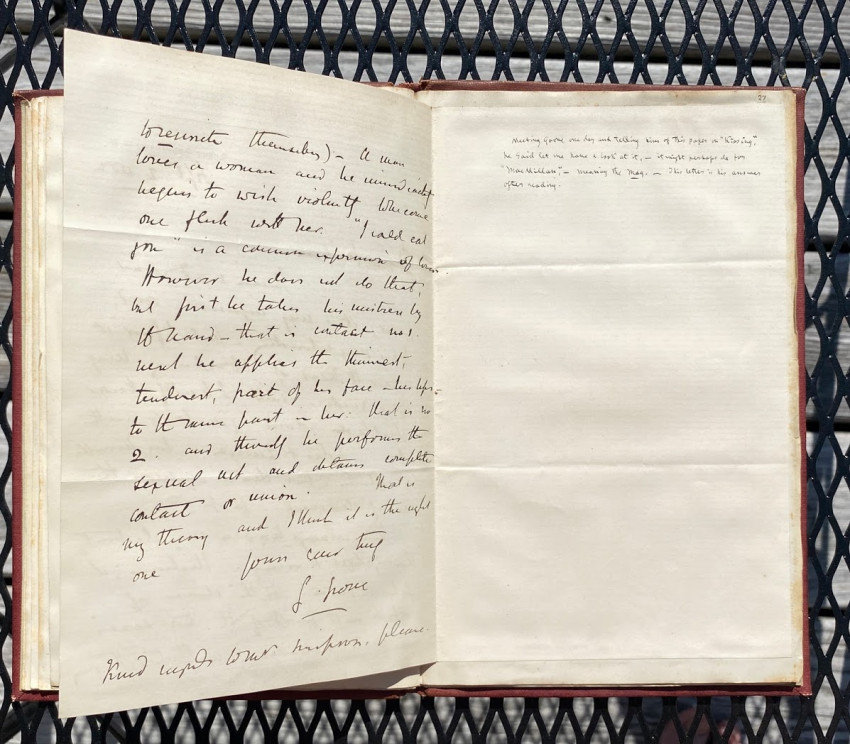 to reunite themselves) – A man
loves a woman and he immediately
begins to wish violently to become
one flesh with her. "I could eat
you" is a common expression of
However he does not do that,
but first he takes his mistress by
the hand – that is contact no 1.
next he applies the thinnest,
tenderest, part of his face – his lips –
to the same part in her: that is no
2. and thirdly he performs the
sexual act and obtains complete
contact or union. That is
my theory and I think it is the right
one yours ever truly
G. Grove
Kind regards to Mr Simpson, please.
37
Meeting Grove one day and talking him of this paper on "Kissing",
he said let me have a look at it, – it might perhaps do for
"MacMillan", – meaning the Mag. – This letter is his answer
after reading.